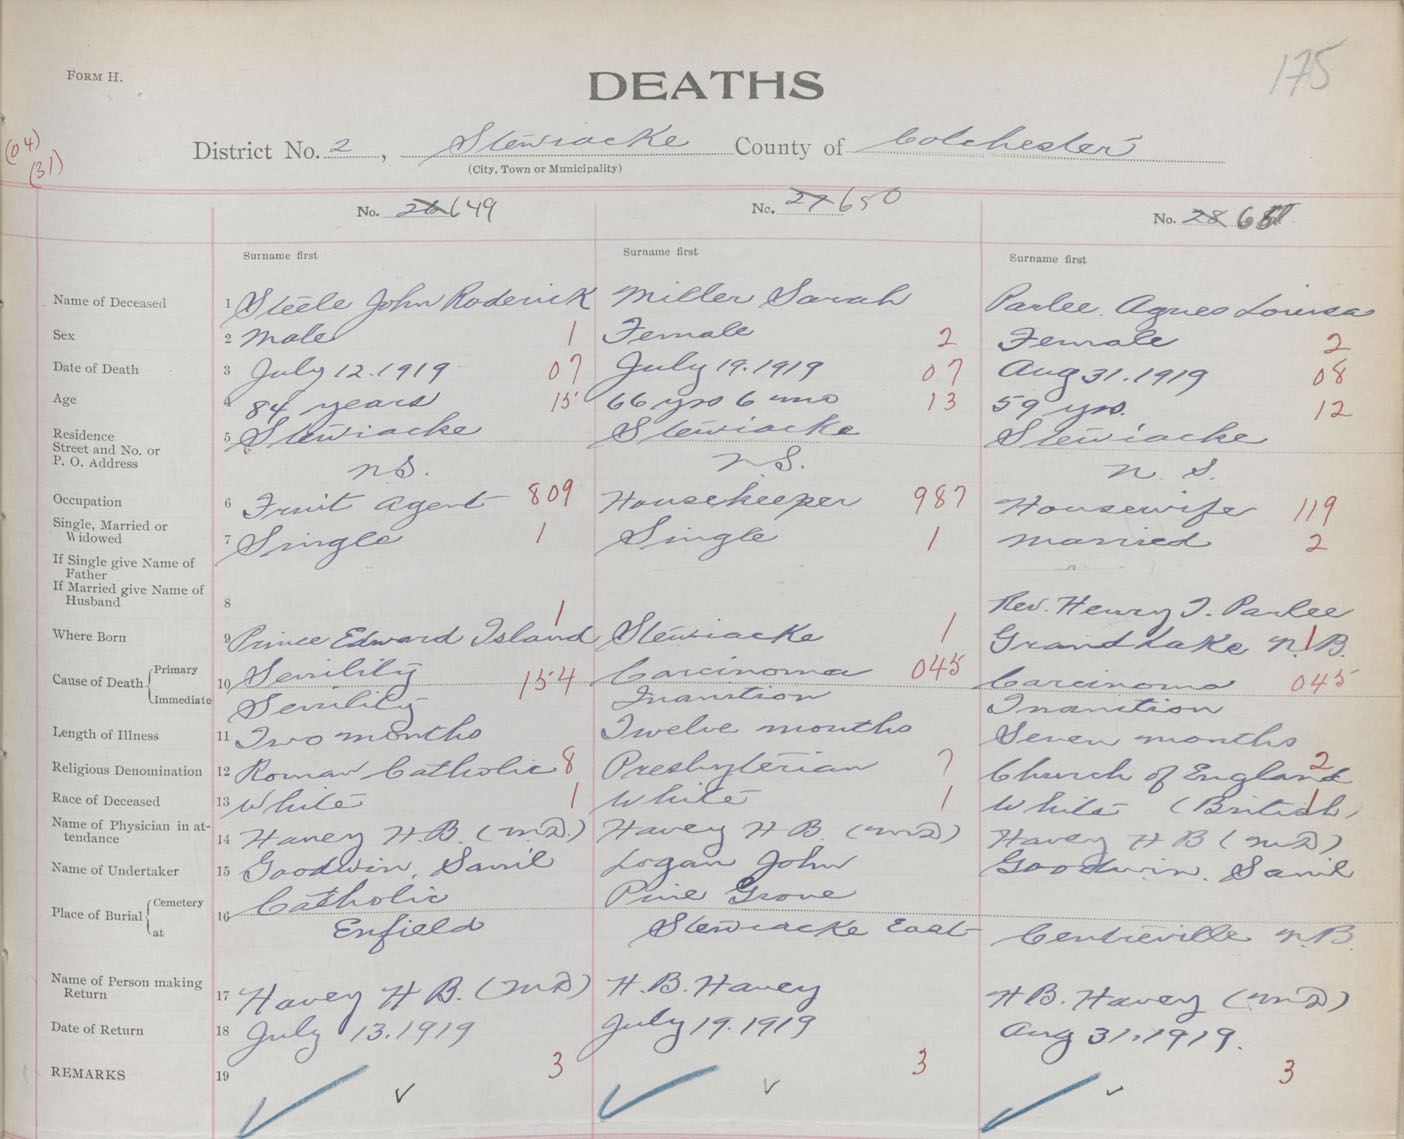 FORM H.
DEATHS
175
(04)
(31)
District No. 2, Stewiacke County of Colchester
(City, Town or Municipality)
No. 26 649 No. 27 650 No. 28 651
Surname first Surname first Surname first
Name of Deceased 1 Steele John Roderick Miller Sarah Parlee. Agnes Louisa
Sex 2 Male 1 Female 2 Female 2
Date of Death 3 July 12. 1919 07 July 19. 1919 07 Aug 31. 1919 08
Age 4 84 years 15 66 yrs 6 mno 13 59 yrs. 12
Residence 5 Stewiacke Stewiacke Stewiacke
Street and No. or
P. O. Address N.S. N.S. N. S.
Occupation 6 Fruit Agent 809 Housekeeper 987 Housewife 119
Single, Married or
Widowed 7 Single 1 Single 1 Married 2
If Single give Name of
Father
If Married give Name of
Husband 8 Rev. Henry T. Parlee
Where Born 9 Prince Edward Island 1 Stewiacke 1 Grand Lake N.B. 1
Cause of Death Primary 10 Senility 154 Carcinoma 045 Carcinoma 045
Immediate Senility Inanition Inanition
Length of Illness 11 Two months Twelve months Seven months
Religious Denomination 12 Roman Catholic 8 Presbyterian 7 Church of England 2
Race of Deceased 13 White 1 White 1 White (British) 1
Name of Physician in at-
tendance 14 Havey H.B. (M.D.) Havey H B. (M D) Havey H B (M D)
Name of Undertaker 15 Goodwin, Saml Logan John Goodwin. Saml
Place of Burial Cemetery 16 Catholic Pine Grove
at Enfield Stewiacke East Centreville N.B.
Name of Person making
Return 17 Havey H B. (M D) H. B. Havey H B. Havey (M D)
Date of Return 18 July 13. 1919 July 19. 1919 Aug 31, 1919.
REMARKS 19 3 3 3